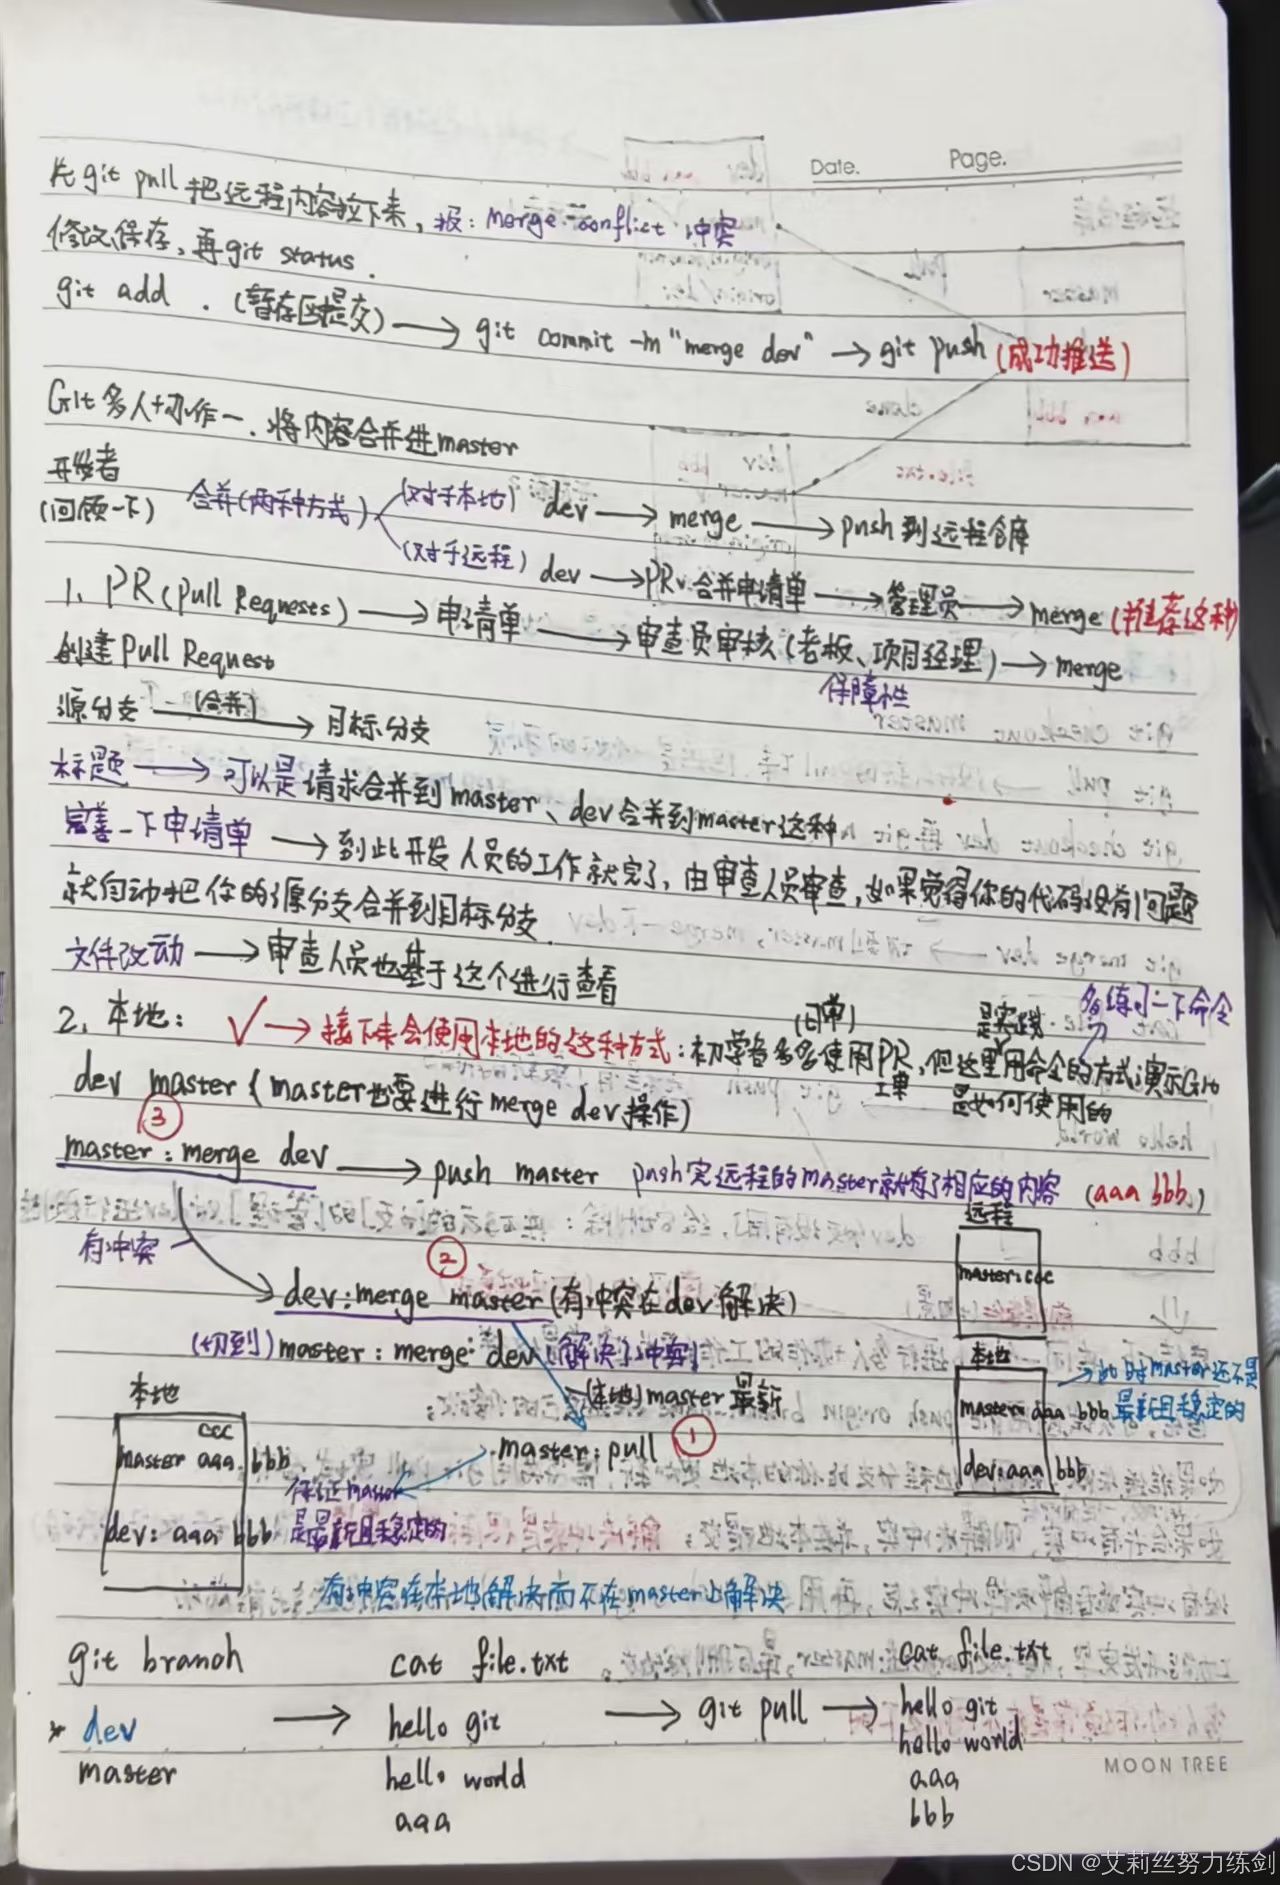 Date. Page.
先git pull把远程内容拉下来，报：merge conflict 冲突
修改保存，再git status.
git add . (暂存区提交) → git commit -m "merge dev" → git push (成功推送)
Git多人协作一. 将内容合并进master
开发者
(回顾一下) 合并(两种方式) (对于本地) dev → merge → push到远程仓库
(对于远程) dev → PR 合并申请单 → 管理员 → merge (推荐这种)
1. PR (Pull Requests) → 申请单 → 审查员审核 (老板、项目经理) → merge
保障性
创建Pull Request
源分支 (合并) → 目标分支
标题 → 可以是请求合并到master、dev合并到master这种
完善一下申请单 → 到此开发人员的工作就完了，由审查人员审查，如果觉得你的代码没有问题
就自动把你的源分支合并到目标分支.
文件改动 → 审查人员也基于这个进行查看
2. 本地： ✓ → 接下来会使用本地的这种方式：初学者多多使用PR，但这里用命令的方式演示Git
是如何使用的
是实践 多练习一下命令
工单
dev master (master也要进行merge dev操作)
③
master：merge dev → push master push完远程的master就有了相应的内容 (aaa bbb)
有冲突
②
dev：merge master (有冲突在dev解决)
(切到) master：merge dev (解决了冲突)
远程
master：ccc
本地
master：aaa bbb
dev：aaa bbb
→ 此时master还不是
最新且稳定的
(本地) master最新
master：pull ①
保证master
是最新且稳定的
本地
ccc
master aaa bbb
dev：aaa bbb
有冲突在本地解决而不在master上解决
git branch cat file.txt cat file.txt
* dev → hello git → git pull → hello git
master hello world hello world
aaa aaa
bbb
MOON TREE
CSDN @艾莉丝努力练剑